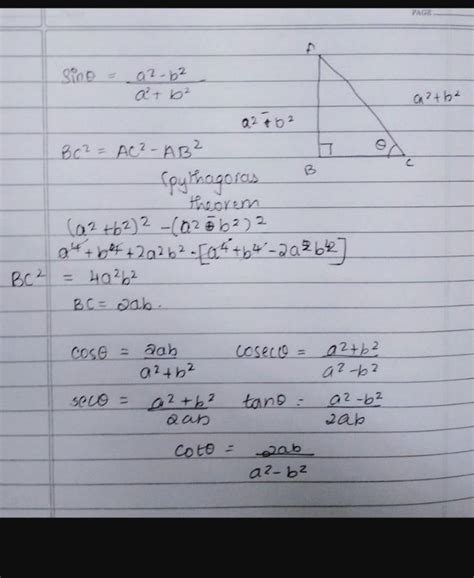 PAGE
A
sinθ = a²-b² / a²+b²
a²+b²
a²-b²
BC² = AC² - AB²
θ
B
C
(pythagoras
theorem
(a²+b²)² - (a²-b²)²
a⁴+b⁴+2a²b² - [a⁴+b⁴-2a²b²]
BC² = 4a²b²
BC = 2ab.
cosθ = 2ab / a²+b² cosecθ = a²+b² / a²-b²
secθ = a²+b² / 2ab tanθ = a²-b² / 2ab
cotθ = 2ab / a²-b²